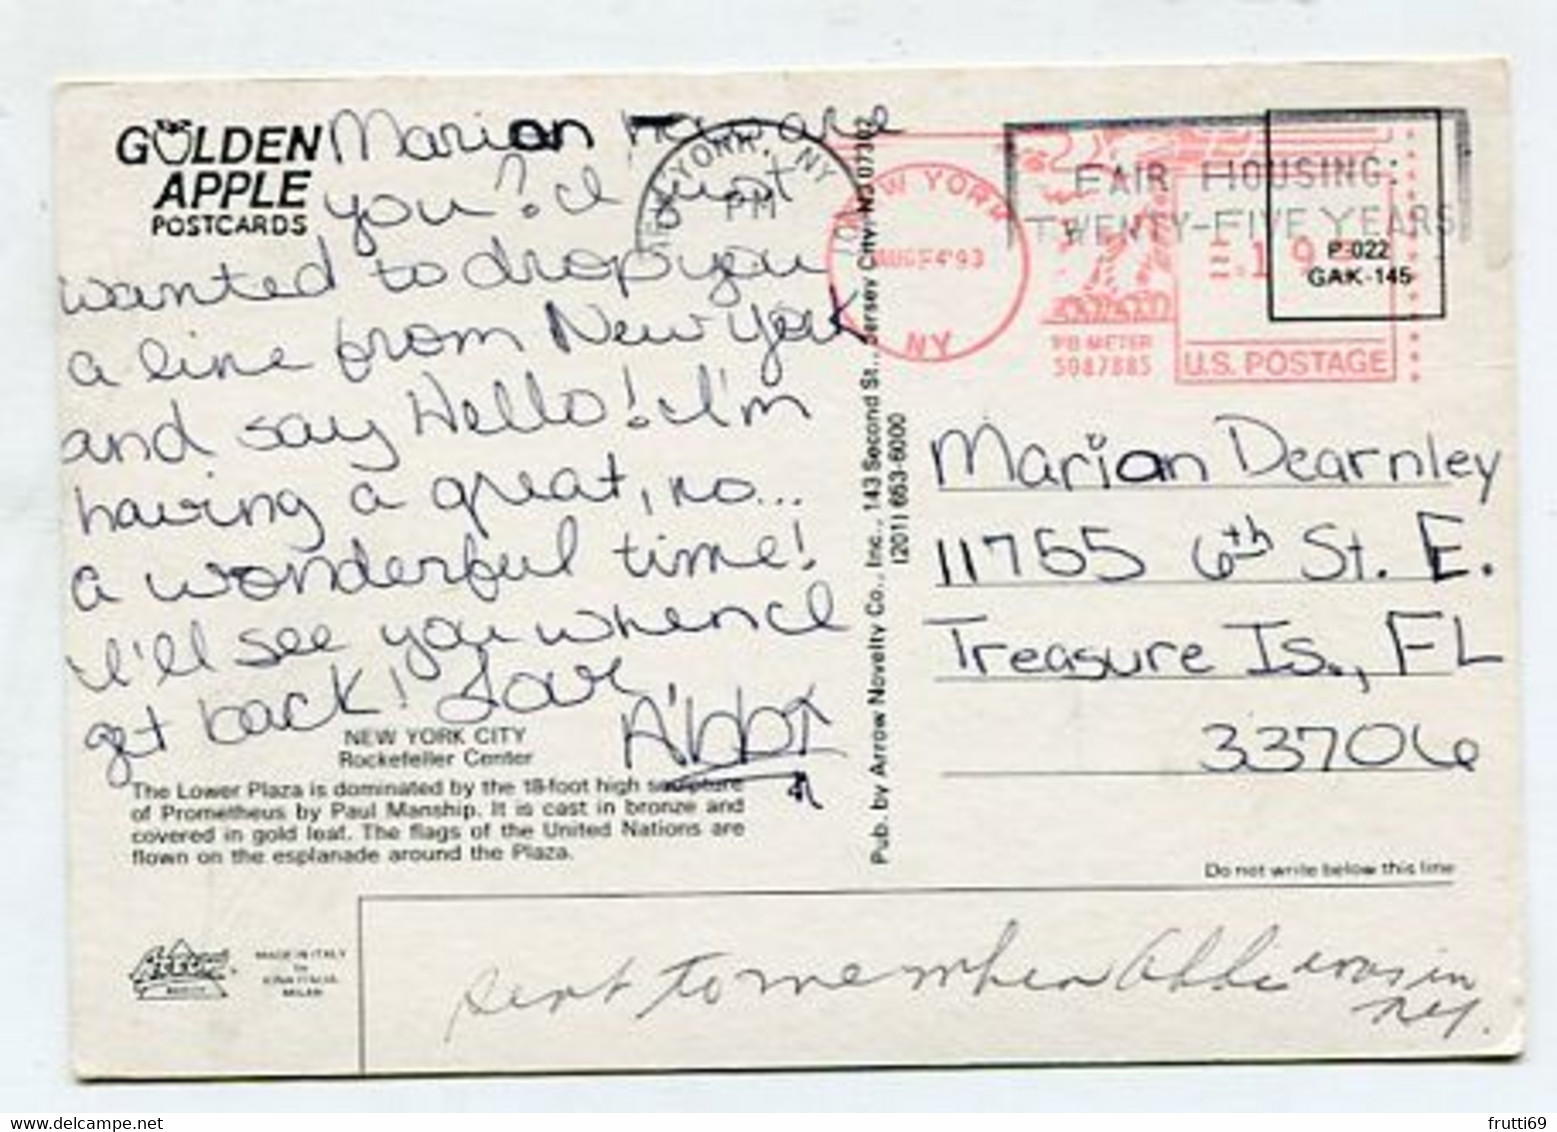 GOLDEN
APPLE
POSTCARDS
Marion how are
you? I just
wanted to drop you
a line from New York
and say Hello! I'm
having a great, no...
a wonderful time!
I'll see you when I
get back! Love
Abbi
NEW YORK CITY
Rockefeller Center
The Lower Plaza is dominated by the 18-foot high sculpture
of Prometheus by Paul Manship. It is cast in bronze and
covered in gold leaf. The flags of the United Nations are
flown on the esplanade around the Plaza.
MADE IN ITALY
MILAN
Pub. by Arrow Novelty Co., Inc., 143 Second St., Jersey City, NJ 07302
(201) 653-6000
NEW YORK, NY
PM
NEW YORK
AUG 24 '93
NY
FAIR HOUSING:
TWENTY-FIVE YEARS
PB METER
5087885
U.S. POSTAGE
P-022
GAK-145
Marion Dearnley
11755 6th St. E.
Treasure Is., FL
33706
Do not write below this line
sent to me when Abbi was in
NY.
frutti69